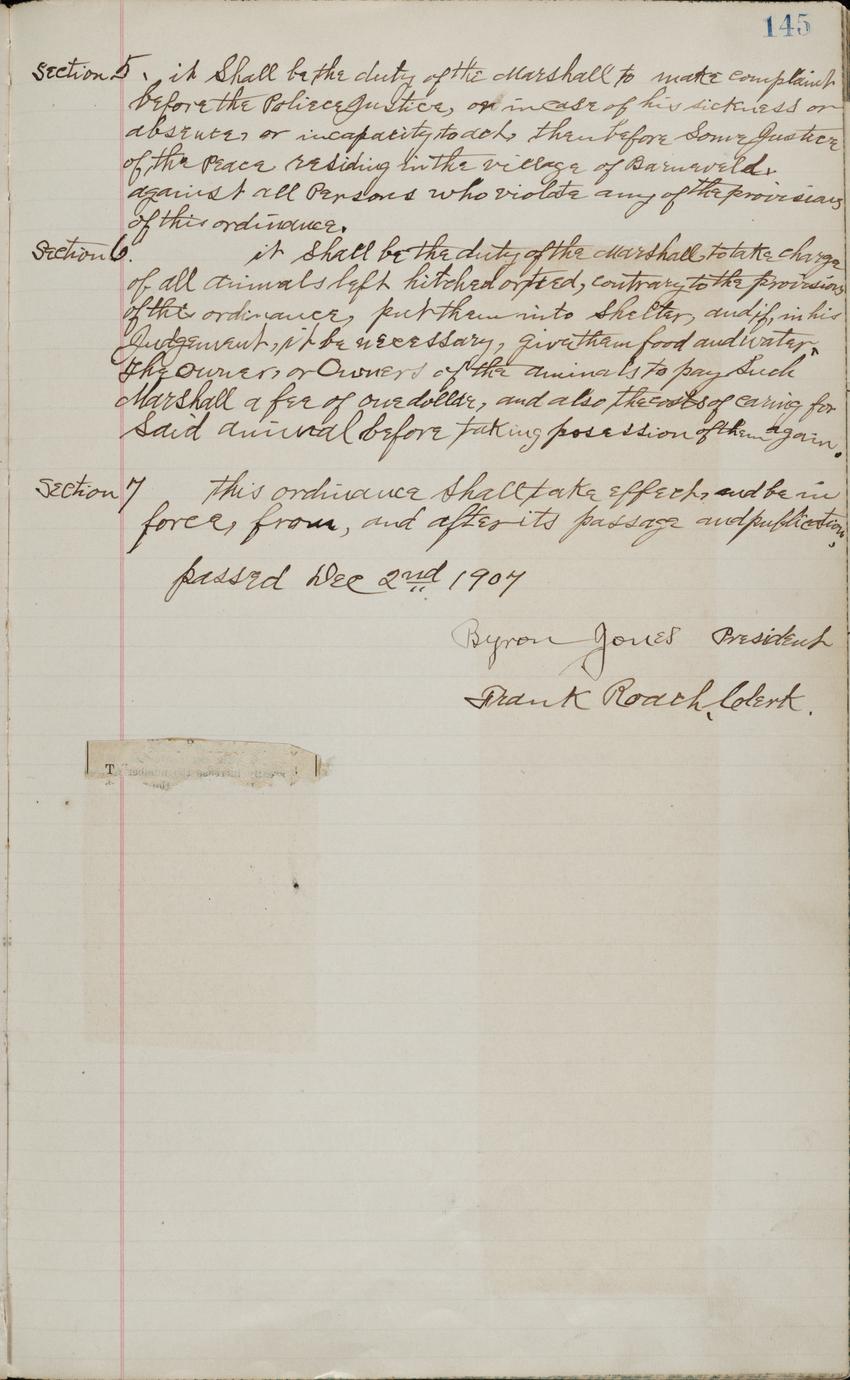 145
Section 5. it Shall be the duty of the Marshall to make complaint
before the Poliece Justice, or in case of his sickness or
absence, or incapacity to act, then before Some Justice
of the Peace residing in the village of Barneveld.
against all Persons who violate any of the provisions
of this ordinance.
Section 6. it Shall be the duty of the Marshall, to take charge
of all animals left hitched or tied, contrary to the provisions
of this ordinance, put them into Shelter, and if, in his
Judgement, it be necessary, give them food and water,
the owner, or Owners of the aminals to pay Such
Marshall a fee of one dollar, and also the costs of caring for
Said animal before taking posession of them again.
Section 7 this ordinance Shall take effect, and be in
force, from, and after its passage and publication,
passed Dec 2nd 1907
Byron Jones President
Frank Roach, Clerk.
T